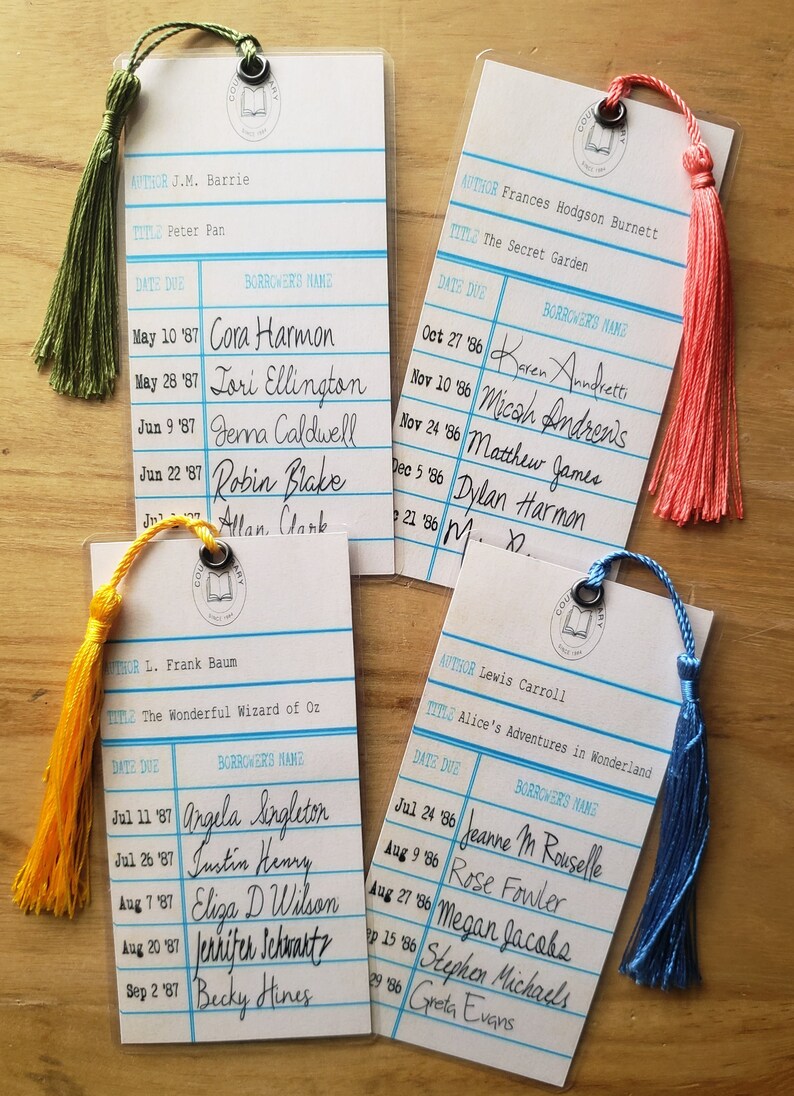 SINCE 1984
AUTHOR J.M. Barrie
TITLE Peter Pan
DATE DUE BORROWER'S NAME
May 10 '87 Cora Harmon
May 28 '87 Tori Ellington
Jun 9 '87 Jenna Caldwell
Jun 22 '87 Robin Blake
Allan Clark
SINCE 1984
AUTHOR Frances Hodgson Burnett
TITLE The Secret Garden
DATE DUE BORROWER'S NAME
Oct 27 '86 Karen Anndretti
Nov 10 '86 Micah Andrews
Nov 24 '86 Matthew James
Dec 5 '86 Dylan Harmon
21 '86
SINCE 1984
AUTHOR L. Frank Baum
TITLE The Wonderful Wizard of Oz
DATE DUE BORROWER'S NAME
Jul 11 '87 Angela Singleton
Jul 26 '87 Justin Henry
Aug 7 '87 Eliza D Wilson
Aug 20 '87 Jennifer Schwartz
Sep 2 '87 Becky Hines
SINCE 1984
AUTHOR Lewis Carroll
TITLE Alice's Adventures in Wonderland
DATE DUE BORROWER'S NAME
Jul 24 '86 Jeanne M Rouselle
Aug 9 '86 Rose Fowler
Aug 27 '86 Megan Jacobs
15 '86 Stephen Michaels
29 '86 Greta Evans